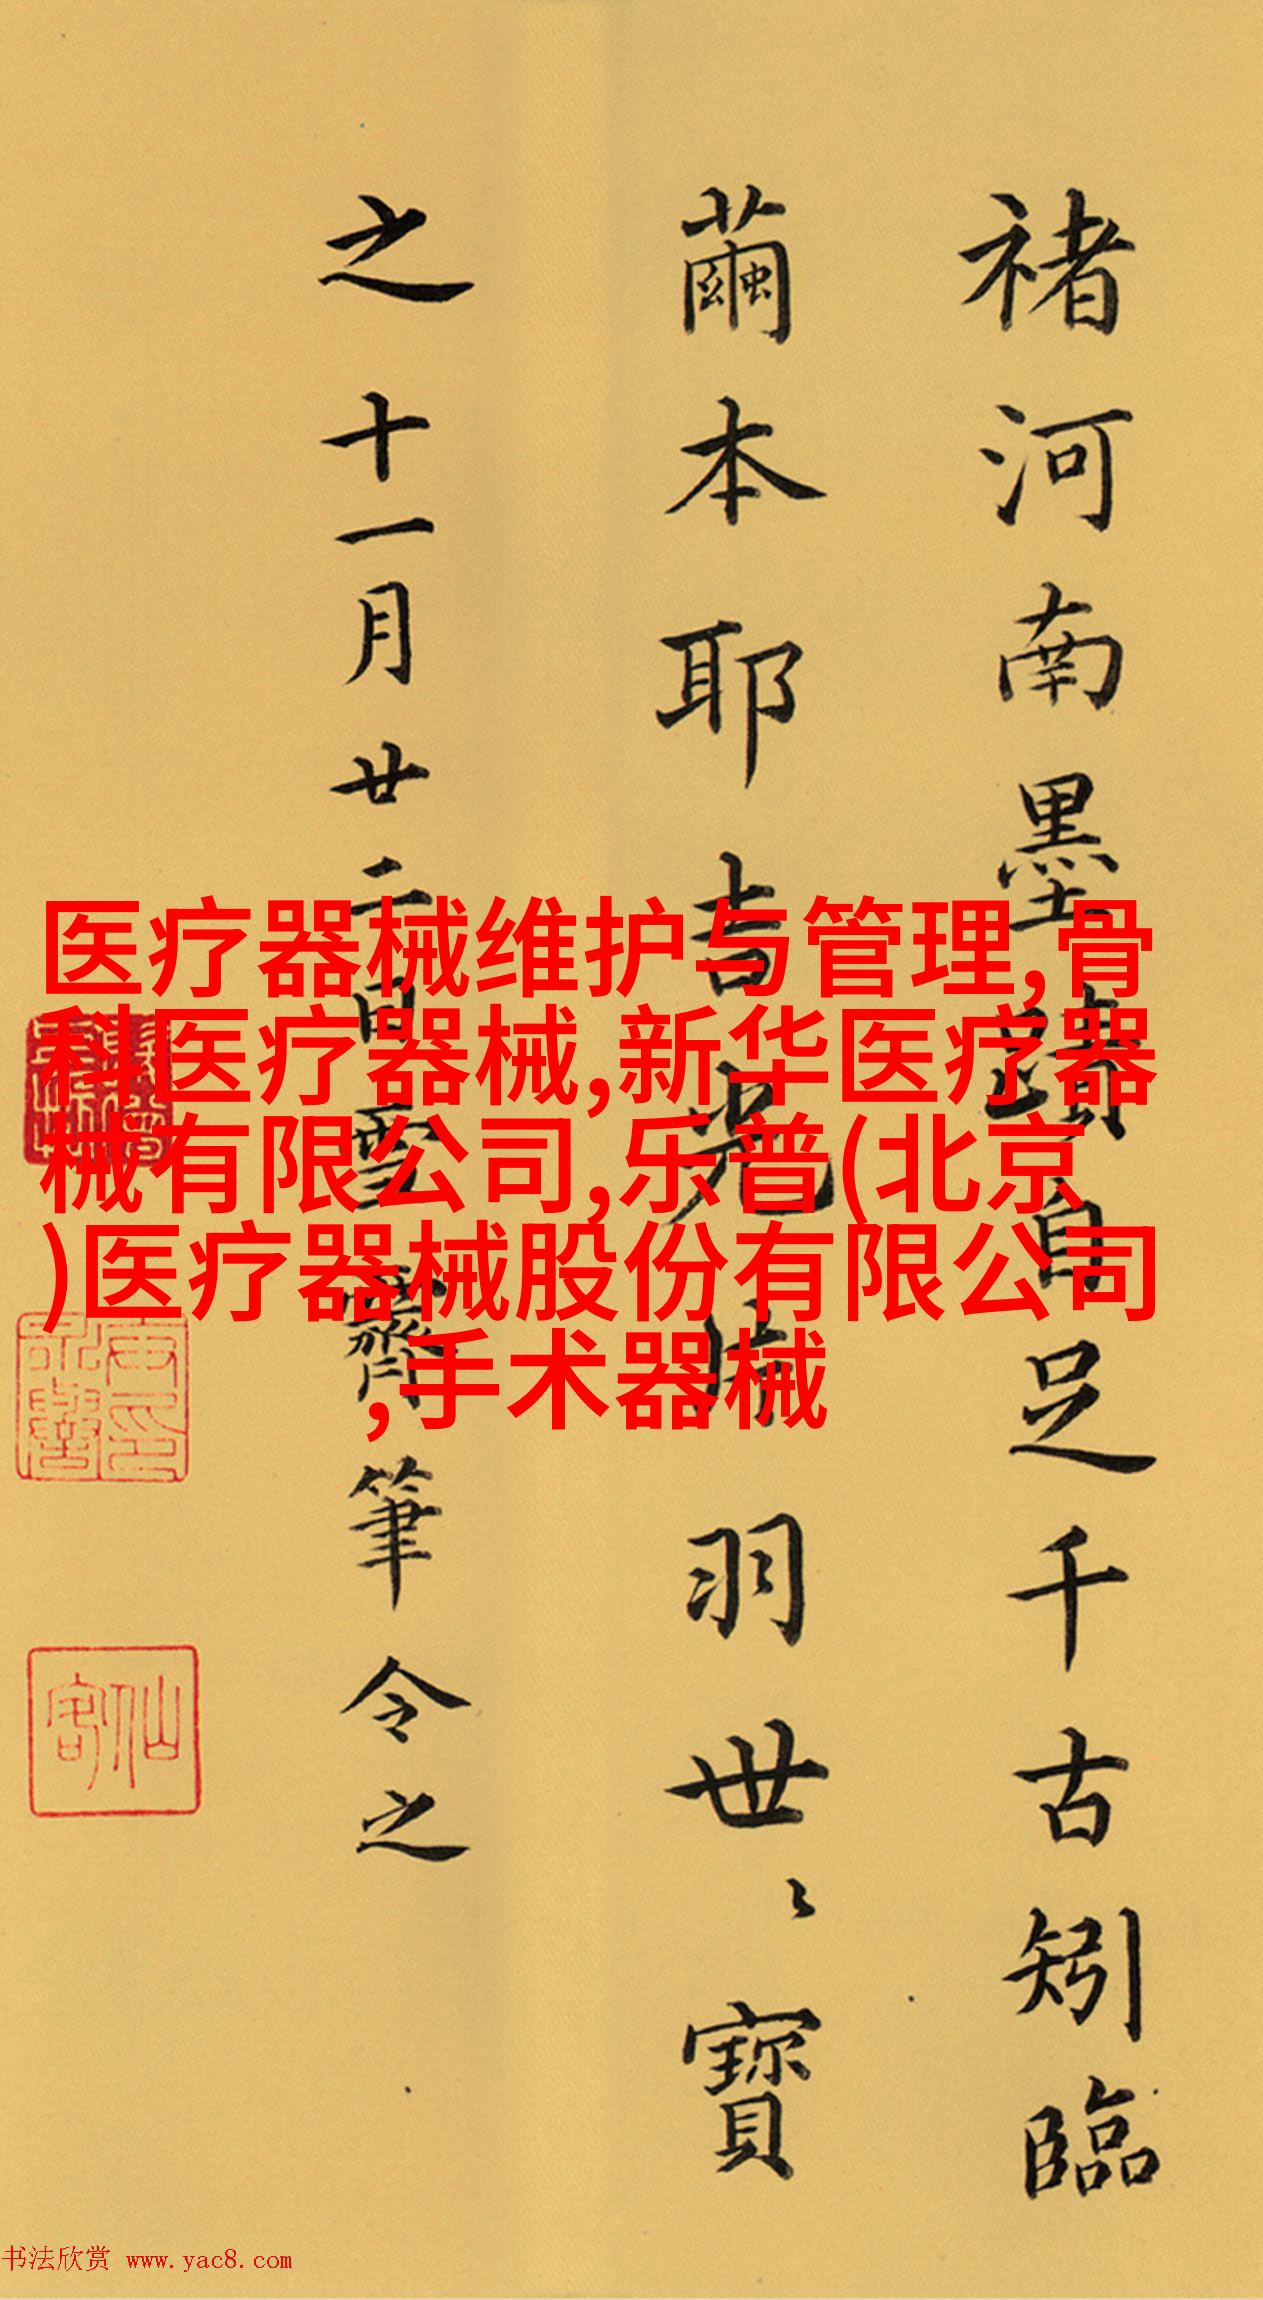 褚河南墨蹟自足千古矧臨
繭本耶吉光片羽世〻寶
之十一月廿二日雪齋筆令之
医疗器械维护与管理,骨
科医疗器械,新华医疗器
械有限公司,乐普(北京
)医疗器械股份有限公司
,手术器械
仙客
书法欣赏 www.yac8.com